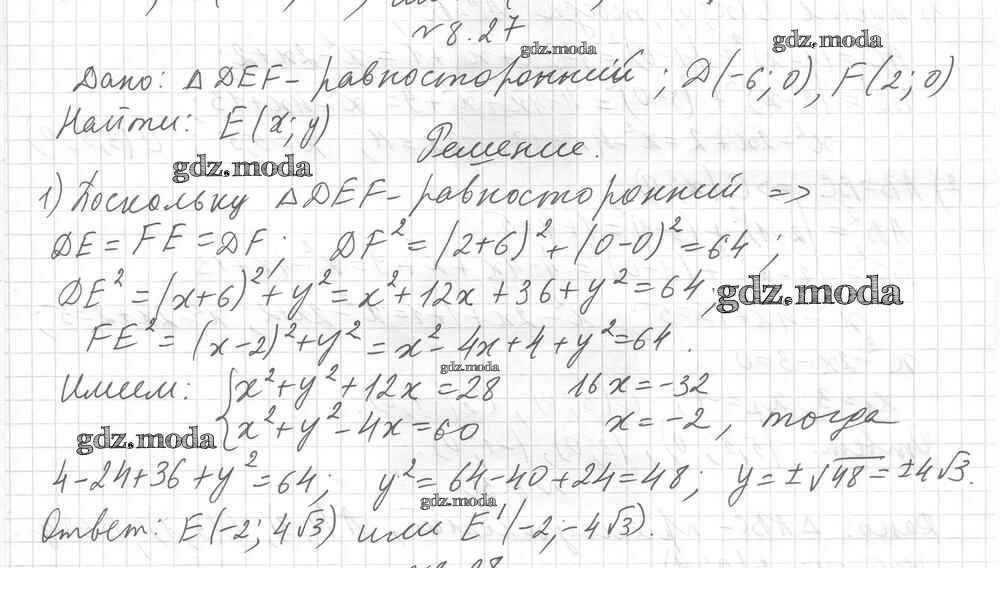 № 8.27
gdz.moda
gdz.moda
Дано: △DEF – равносторонний; D(-6; 0), F(2; 0)
Найти: E(x; y)
Решение.
gdz.moda
1) Поскольку △DEF – равносторонний =>
DE = FE = DF; DF² = (2+6)² + (0-0)² = 64;
DE² = (x+6)² + y² = x² + 12x + 36 + y² = 64;
gdz.moda
FE² = (x-2)² + y² = x² - 4x + 4 + y² = 64.
gdz.moda
Имеем: { x² + y² + 12x = 28 16x = -32
x² + y² - 4x = 60 x = -2, тогда
gdz.moda
4 - 24 + 36 + y² = 64; y² = 64 - 40 + 24 = 48; y = ±√48 = ±4√3.
gdz.moda
Ответ: E(-2; 4√3) или E'(-2; -4√3).